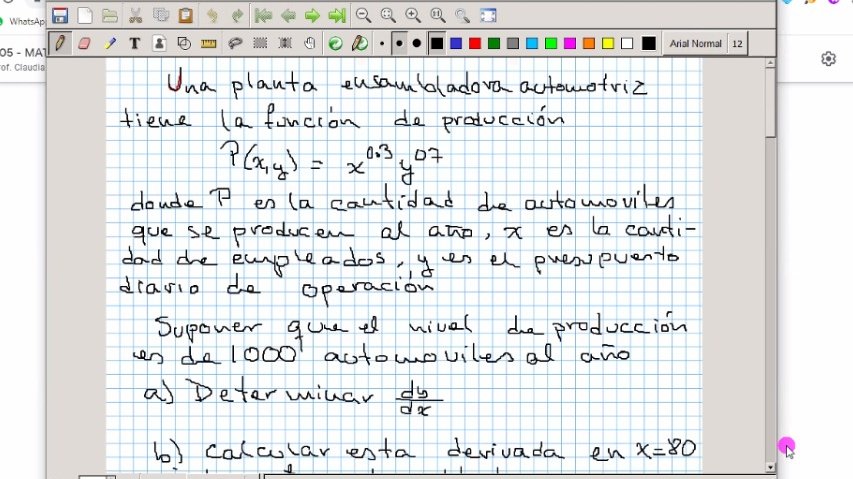 WhatsApp
05 - MAT
Prof. Claudia
T
Arial Normal 12
Una planta ensambladora automotriz
tiene la función de producción
P(x,y) = x^0.3 y^0.7
donde P es la cantidad de automoviles
que se producen al año, x es la canti-
dad de empleados, y es el presupuesto
diario de operación
Suponer que el nivel de producción
es de 1000 automoviles al año
a) Determinar dy/dx
b) calcular esta derivada en x=80